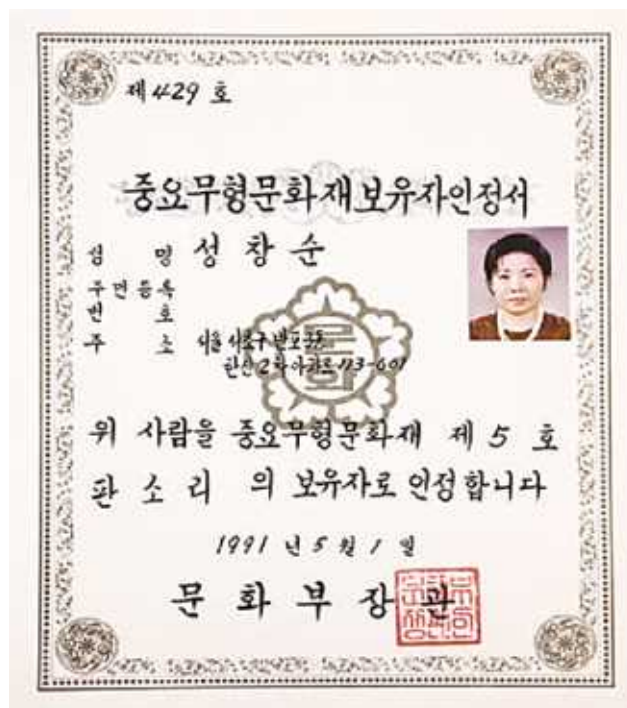 제 429 호
중요무형문화재보유자인정서
성 명 성 창 순
주민등록
번 호
주 소 서울 서초구 반포2동
한신 2차 아파트 113-601
위 사람을 중요무형문화재 제 5 호
판 소 리 의 보유자로 인정합니다
1991 년 5 월 1 일
문 화 부 장 관